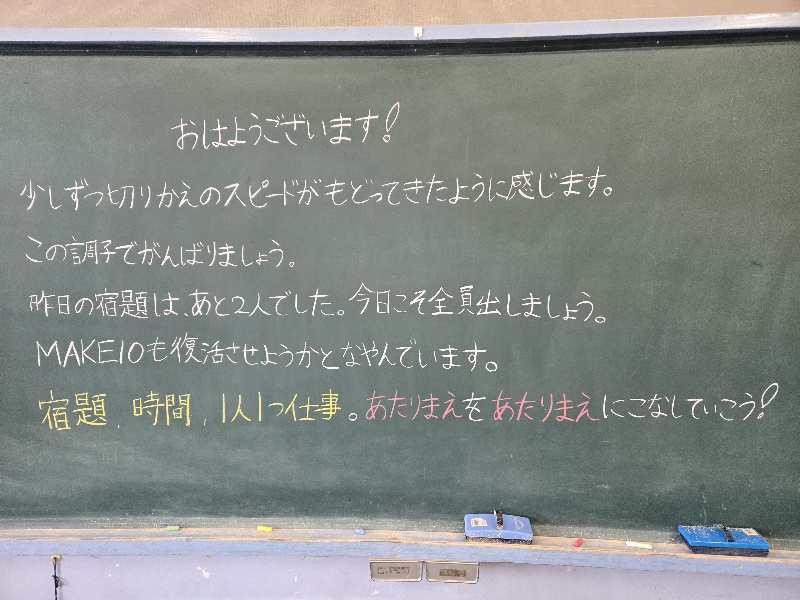 おはようございます!
少しずつ切りかえのスピードがもどってきたように感じます。
この調子でがんばりましょう。
昨日の宿題は、あと2人でした。今日こそ全員出しましょう。
MAKE10も復活させようかとなやんでいます。
宿題、時間、1人1つ仕事。あたりまえをあたりまえにこなしていこう!